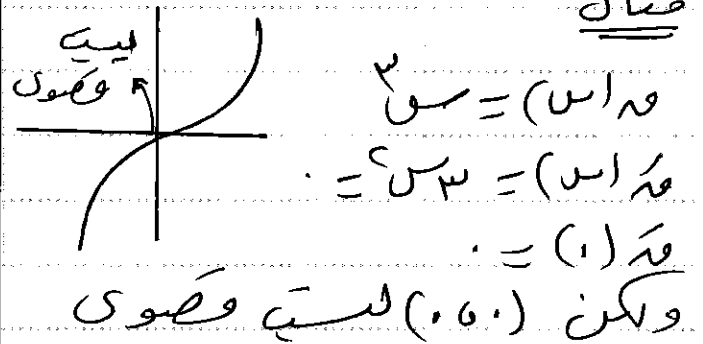 مثال
ليست
قصوى
ق(س) = س٣
قَ(س) = ٣س٢ = ٠
قَ(٠) = ٠
ولكن (٠،٠) ليست قصوى